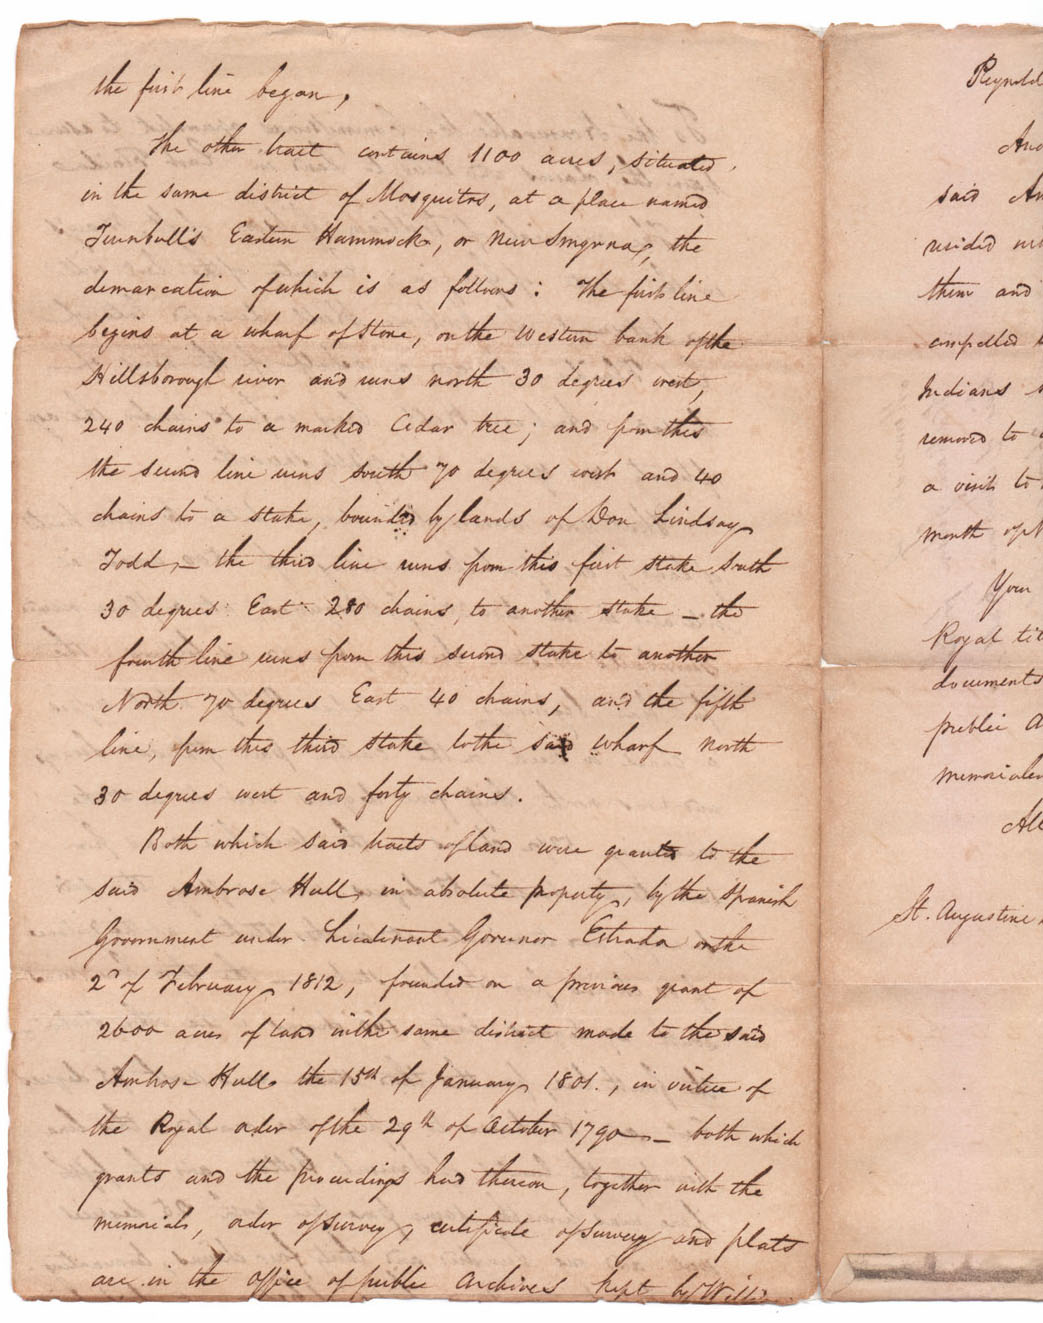 the first line began,
The other tract contains 1100 acres, situated
in the same district of Mosquitos, at a place named
Turnbull's Eastern Hammock, or New Smyrna, the
demarcation of which is as follows: The first line
begins at a wharf of Stone, on the Western bank of the
Hillsborough river and runs north 30 degrees west,
240 chains to a marked Cedar tree; and from this
the second line runs south 70 degrees west and 40
chains to a stake, bounded by lands of Don Lindsay
Todd, — the third line runs from this first stake South
30 degrees East 280 chains, to another stake — the
fourth line runs from this second stake to another
North 70 degrees East 40 chains, and the fifth
line, from this third stake to the said wharf north
30 degrees west and forty chains.
Both which said tracts of land were granted to the
said Ambrose Hull, in absolute property, by the Spanish
Government under Lieutenant Governor Estrada on the
2d of February 1812, founded on a previous grant of
2600 acres of land in the same district made to the said
Ambrose Hull the 15th of January 1801., in virtue of
the Royal order of the 29th of October 1790 — both which
grants and the proceedings had thereon, together with the
memorials, order of survey, certificate of survey and plats
are in the office of public archives kept by
And
said
resided
them and
compelled
Indians
removed to
a visit to
month of
Your
Royal
documents
public
All
St. Augustine